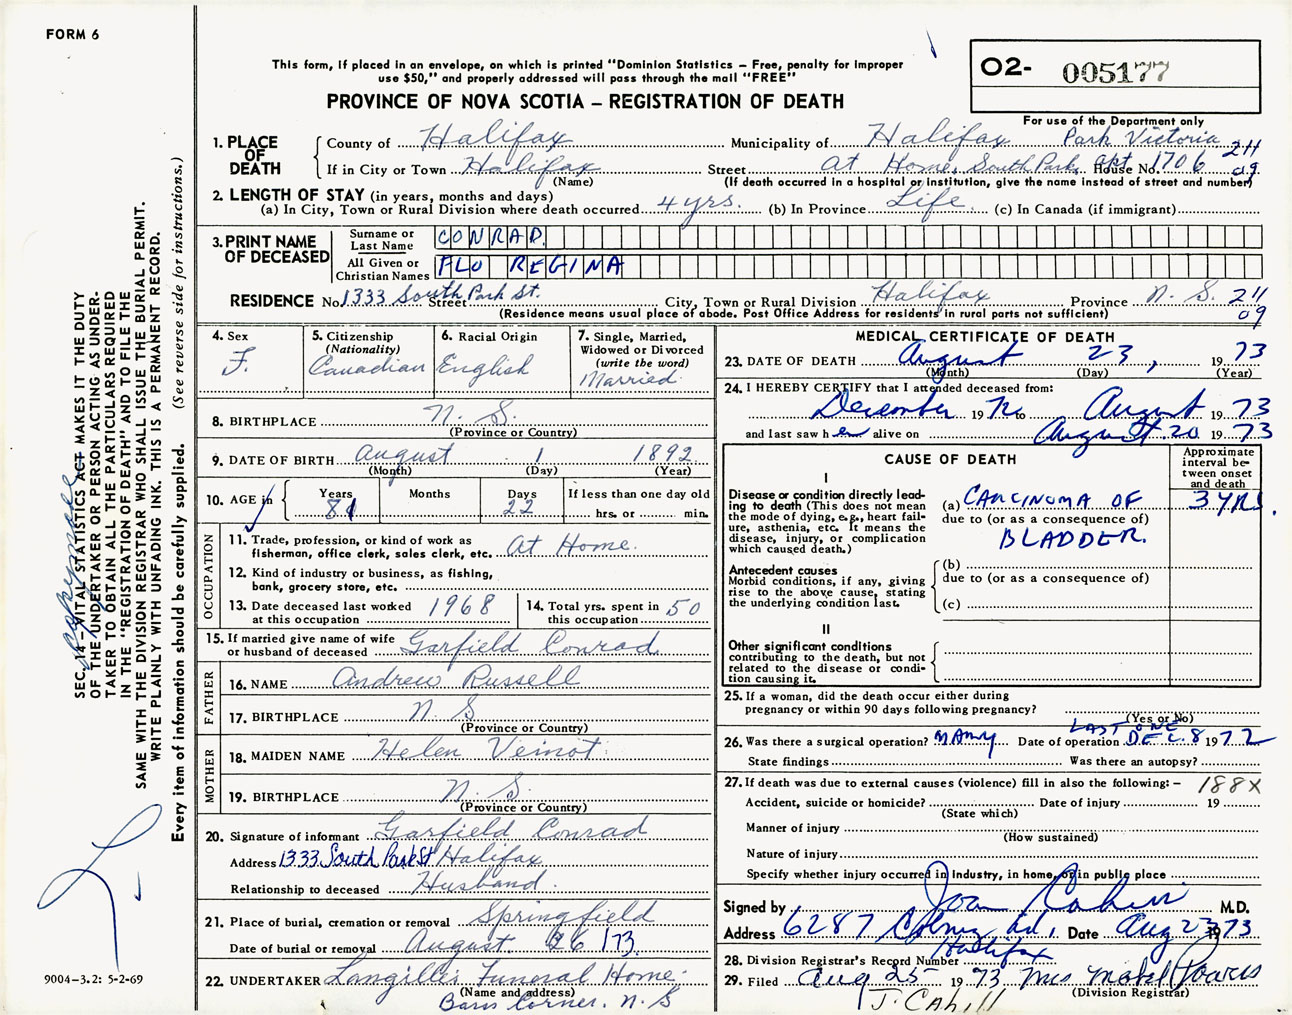 FORM 6
This form, if placed in an envelope, on which is printed "Dominion Statistics – Free, penalty for improper
use $50," and properly addressed will pass through the mail "FREE"
PROVINCE OF NOVA SCOTIA – REGISTRATION OF DEATH
O2- 005177
For use of the Department only
1. PLACE OF DEATH
County of Halifax Municipality of Halifax Park Victoria 211
If in City or Town Halifax Street At Home, South Park, apt. House No. 1706 09
(Name) (If death occurred in a hospital or institution, give the name instead of street and number)
2. LENGTH OF STAY (in years, months and days)
(a) In City, Town or Rural Division where death occurred 4 yrs. (b) In Province Life. (c) In Canada (if immigrant)
3. PRINT NAME OF DECEASED
Surname or Last Name CONRAD.
All Given or Christian Names FLO REGINA
RESIDENCE No. 1333 South Park St. Street City, Town or Rural Division Halifax Province N. S. 211
(Residence means usual place of abode. Post Office Address for residents in rural parts not sufficient) 09
4. Sex
F.
5. Citizenship
(Nationality)
Canadian
6. Racial Origin
English
7. Single, Married,
Widowed or Divorced
(write the word)
Married
8. BIRTHPLACE N. S.
(Province or Country)
9. DATE OF BIRTH August 1 1892
(Month) (Day) (Year)
10. AGE in
Years 81
Months
Days 22
If less than one day old
hrs. or min.
OCCUPATION
11. Trade, profession, or kind of work as
fisherman, office clerk, sales clerk, etc. At Home.
12. Kind of industry or business, as fishing,
bank, grocery store, etc.
13. Date deceased last worked
at this occupation 1968
14. Total yrs. spent in
this occupation 50
15. If married give name of wife
or husband of deceased Garfield Conrad
FATHER
16. NAME Andrew Russell
17. BIRTHPLACE N. S
(Province or Country)
MOTHER
18. MAIDEN NAME Helen Veinot
19. BIRTHPLACE N. S.
(Province or Country)
20. Signature of informant Garfield Conrad
Address 1333 South Park St Halifax
Relationship to deceased Husband.
21. Place of burial, cremation or removal Springfield
Date of burial or removal August 26 /73
22. UNDERTAKER Langille's Funeral Home
(Name and address)
Barss Corner. N. S
MEDICAL CERTIFICATE OF DEATH
23. DATE OF DEATH August 23, 1973
(Month) (Day) (Year)
24. I HEREBY CERTIFY that I attended deceased from:
December 1972 to August 1973
and last saw her alive on August 20 1973
CAUSE OF DEATH
Approximate
interval be-
tween onset
and death
I
Disease or condition directly lead-
ing to death (This does not mean
the mode of dying, e.g., heart fail-
ure, asthenia, etc. It means the
disease, injury, or complication
which caused death.)
(a) CARCINOMA OF 3 YRS.
due to (or as a consequence of)
BLADDER.
Antecedent causes
Morbid conditions, if any, giving
rise to the above cause, stating
the underlying condition last.
(b)
due to (or as a consequence of)
(c)
II
Other significant conditions
contributing to the death, but not
related to the disease or condi-
tion causing it.
25. If a woman, did the death occur either during
pregnancy or within 90 days following pregnancy?
(Yes or No)
LAST ONE
26. Was there a surgical operation? MANY Date of operation DEC. 8 1972
State findings Was there an autopsy?
27. If death was due to external causes (violence) fill in also the following: – 188X
Accident, suicide or homicide? Date of injury 19
(State which)
Manner of injury
(How sustained)
Nature of injury
Specify whether injury occurred in Industry, in home, or in public place
Signed by M.D.
Address 6287 Rd., Date Aug 23 1973
Halifax
28. Division Registrar's Record Number
29. Filed Aug 25 1973 Mrs Mabel
(Division Registrar)
J. Cahill
SEC. 14 – VITAL STATISTICS ACT MAKES IT THE DUTY
OF THE UNDERTAKER OR PERSON ACTING AS UNDER-
TAKER TO OBTAIN ALL THE PARTICULARS REQUIRED
IN THE "REGISTRATION OF DEATH" AND TO FILE THE
SAME WITH THE DIVISION REGISTRAR WHO SHALL ISSUE THE BURIAL PERMIT.
WRITE PLAINLY WITH UNFADING INK. THIS IS A PERMANENT RECORD.
Every item of information should be carefully supplied. (See reverse side for instructions.)
9004–3.2: 5-2-69